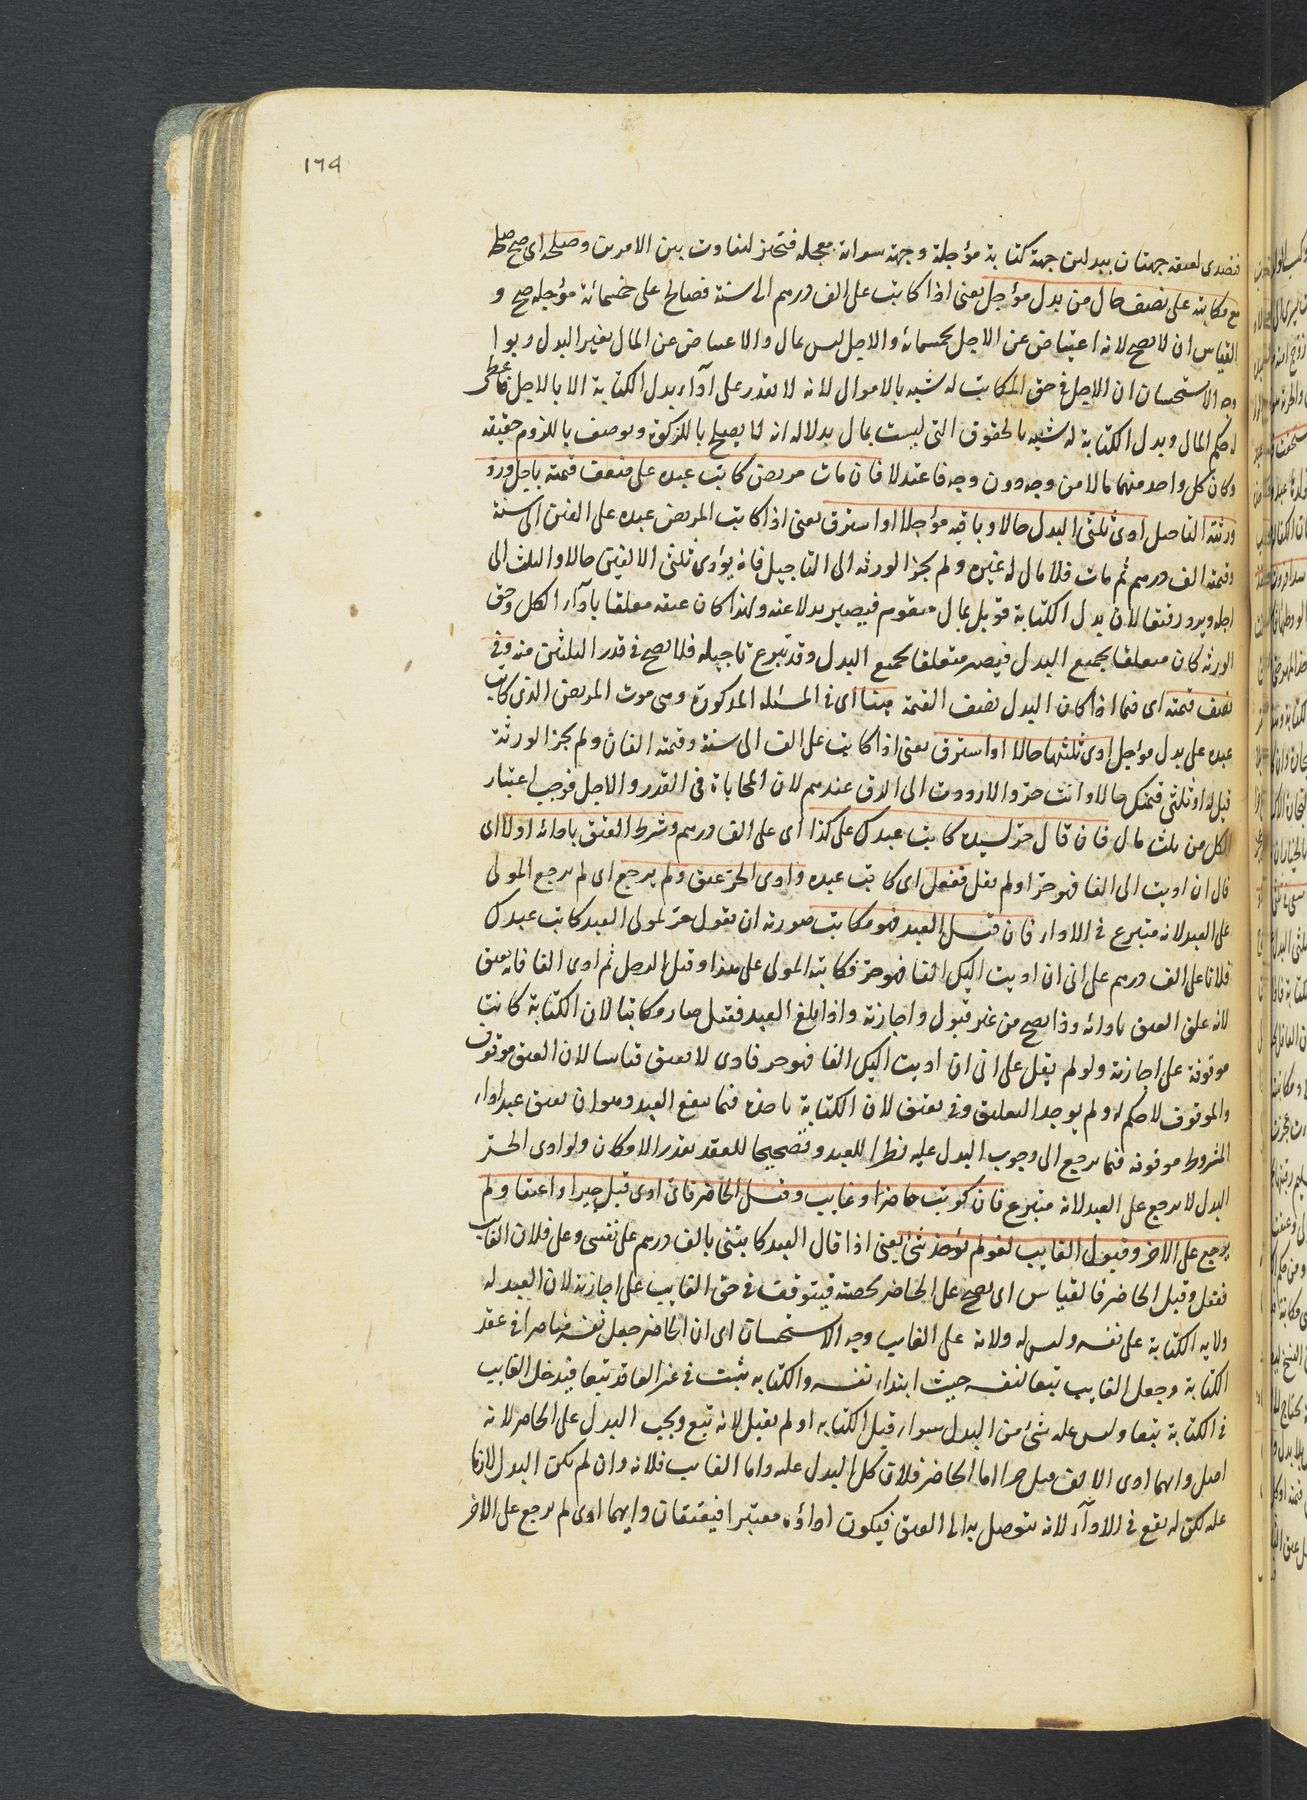 ١٦٩
فتصدى لعتقه جهتان ببدلين جهة كتابة مؤجلة وجهة سواه معجلة فتخير لتفاوت بين الامرين وصلحه اى صح صلح
مع مكاتبه على نصف حال من بدل مؤجل يعنى اذا كاتبت على الف درهم الى سنة فصالح على خمسمائة مؤجله صح و
القياس ان لا يصح لانه اعتياض عن الاجل بخمسمائة والاجل ليس بمال والاعتياض عن المال بغير البدل ربوا
وجه الاستحسان ان الاجل فى حق المكاتب له شبه بالاموال لانه لا يقدر على آداء بدل الكتابة الا بالاجل فاعطى
له حكم المال وبدل الكتابة له شبه بالحقوق التى ليست بمال بدلالة انه لا يصلح بالزكوة ويوصف باللزوم حقيقه
وكان كل واحد منهما مالا من وجه دون وجه فاعتدلا فان مات مريض كاتب عبده على ضعف قيمته باجل ورد
ورثته التاجيل ادى ثلثى البدل حالا وباقيه مؤجلا او استرق يعنى اذا كاتب المريض عبده على الفين الى سنة
وقيمته الف درهم ثم مات فلا مال له غيره ولم يجز الورثه الى التاجيل فانه يؤدى ثلثى الالفين حالا والثلث الى
اجله ويرد رقيقا لان بدل الكتابة قوبل بمال متقوم فيصير بدلا عنه ولهذا كان عتقه معلقا بآداء الكل وحق
الورثه كان متعلقا بجميع البدل فيصير متعلقا بجميع البدل وقد تبرع تاجيله فلا يصح فى قدر الثلثين منه وفى
نصف قيمته اى فيما اذا كان البدل نصف القيمة هنا اى فى المسئلة المذكورة وهى موت المريض الذى كاتب
عبده على بدل مؤجل ادى ثلثها حالا او استرق يعنى اذا كاتب على الف الى سنة وقيمته الفان ولم يجز الورثة
قيل له اد ثلثى قيمتك حالا وانت حر والا رددت الى الرق عندهم لان المحاباة فى القدر والاجل فوجب اعتبار
الكل من ثلث مال فان قال حر لسيده كاتب عبدك على كذا اى على الف درهم وشرط العتق بادائه اولا اى
قال ان اديت الى الفا فهو حر او لم يقل ففعل اى كاتب عبده وادى الحر عتق ولم يرجع اى لم يرجع المولى
على العبد لانه متبرع فى الاداء فان قبل العبد فهو مكاتب صورته ان يقول حر لمولى العبد كاتب عبدك
فلانا على الف درهم على انى ان اديت اليك الفا فهو حر فكاتبه المولى على هذا وقبل الرجل ثم ادى الفا فانه يعتق
لانه علق العتق بادائه وذا يصح من غير قبول واجازته واذا بلغ العبد فقبل صار مكاتبا لان الكتابة كانت
موقوفة على اجازته ولو لم يقل على انى ان اديت اليك الفا فهو حر فادى لا يعتق قياسا لان العتق موقوف
والموقوف لا حكم له ولم يوجد التعليق وفى يعتق لان الكتابة نافذة فيما ينفع العبد وهو ان يعتق عند اداء
المشروط موقوفه فيما يرجع الى وجوب البدل عليه نظرا للعبد وتصحيحا للعقد بقدر الامكان ولو ادى الحر
البدل لا يرجع على العبد لانه متبرع فان كوتب حاضرا وغايب وقبل الحاضر فاى ادى قبل جبرا واعتقا ولم
يرجع على الاخر وقبول الغايب لغو لم يؤخذ شئ يعنى اذا قال العبد كاتبنى بالف درهم على نفسى وعلى فلان الغايب
ففعل وقبل الحاضر فالقياس اى يصح على الحاضر بحصته فيتوقف فى حق الغايب على اجازته لان العبد له
ولاية الكتابة على نفسه وليس له ولاية على الغايب وجه الاستحسان اى ان الحاضر جعل نفسه متاصرا فى عقد
الكتابة وجعل الغايب تبعا لنفسه حيث ابتداء نفسه والكتابه يثبت فى غير العاقد تبعا فيدخل الغايب
فى الكتابة تبعا وليس عليه شئ من البدل سواء قبل الكتابه او لم يقبل لانه تبع ويجب البدل على الحاضر لانه
اصل وايهما ادى الالف قبل جبرا اما الحاضر فلان كل البدل عليه واما الغايب فلانه وان لم يكن البدل لازما
عليه لكن له نفع فى الادآء لانه يتوصل به الى العتق فيكون اداؤه معتبرا فيعتقان وايهما ادى لم يرجع على الاخر